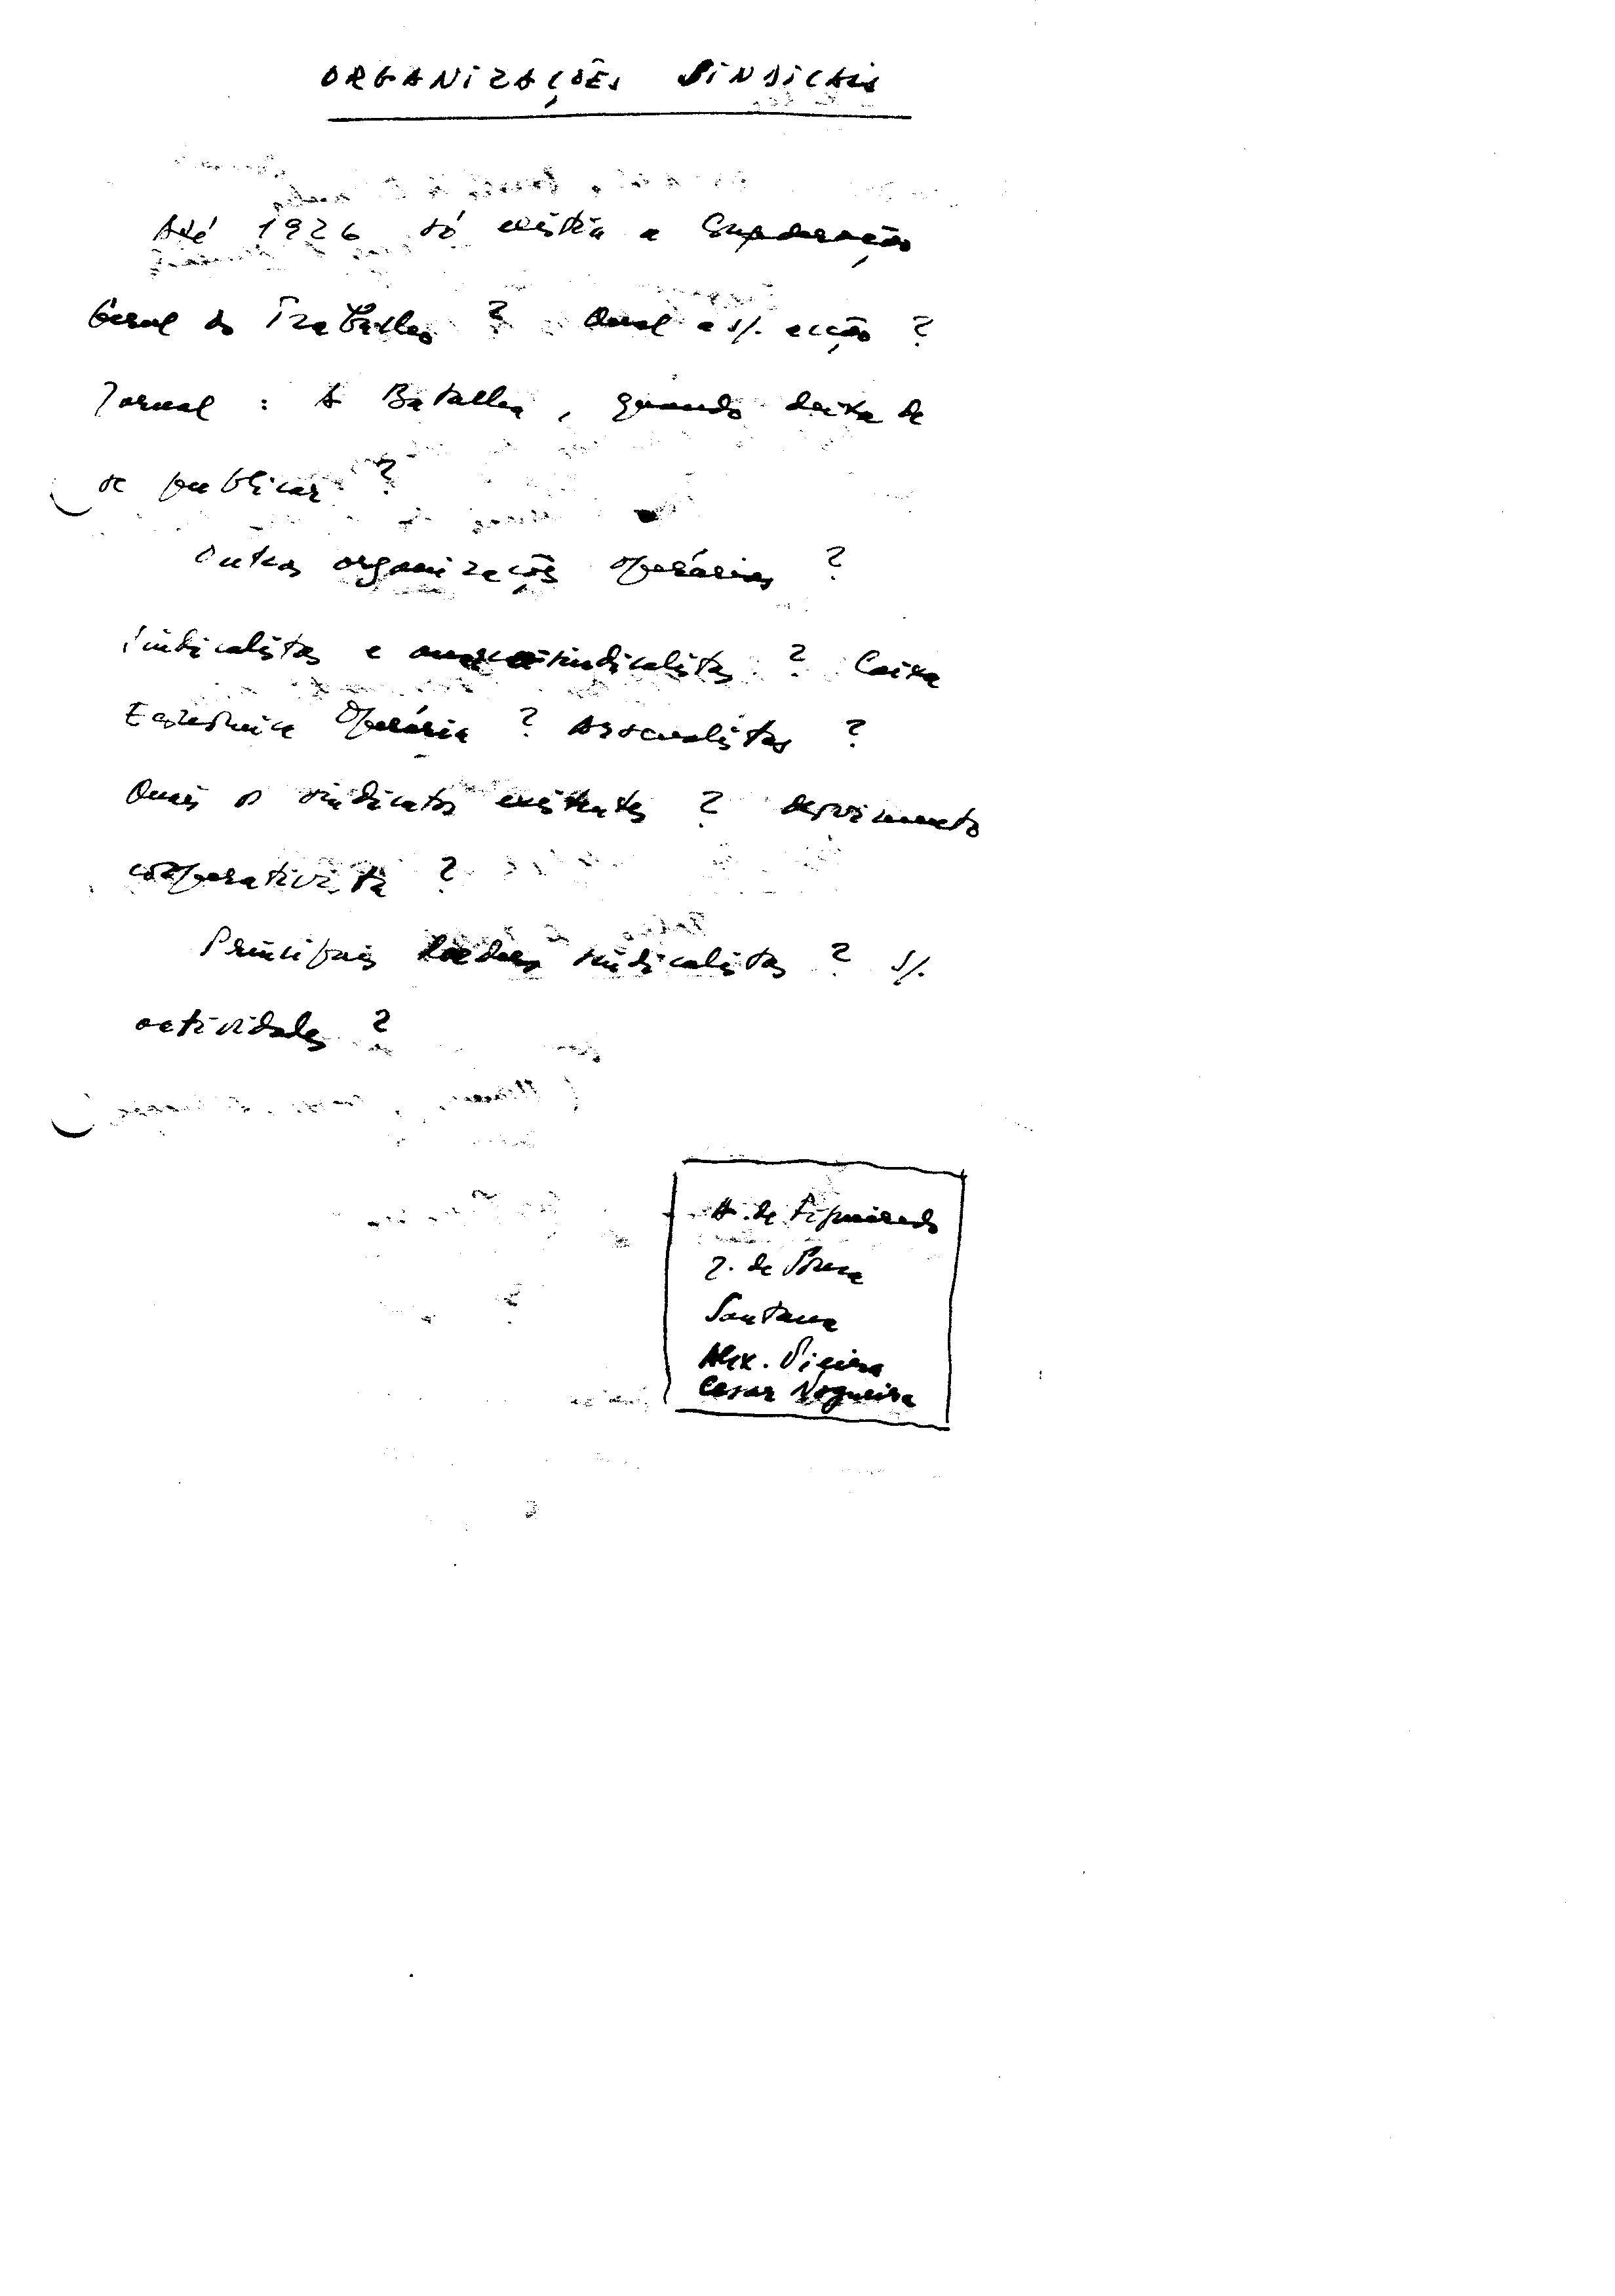 ORGANIZAÇÕES SINDICAIS
Até 1926 só existia a Confederação
Geral do Trabalho ? Qual a s/. acção ?
Jornal : A Batalha , quando deixa de
se publicar ?
Outras organizações operárias ?
Sindicalistas e anarcosindicalistas ? Caixa
Económica Operária ? Arsenalistas ?
Quais os sindicatos existentes ? 
cooperativista ?
Principais líderes sindicalistas ? s/.
actividades ?
A. de Figueiredo
J. de Sousa
Santana
Alex. Vieira
Cesar Nogueira